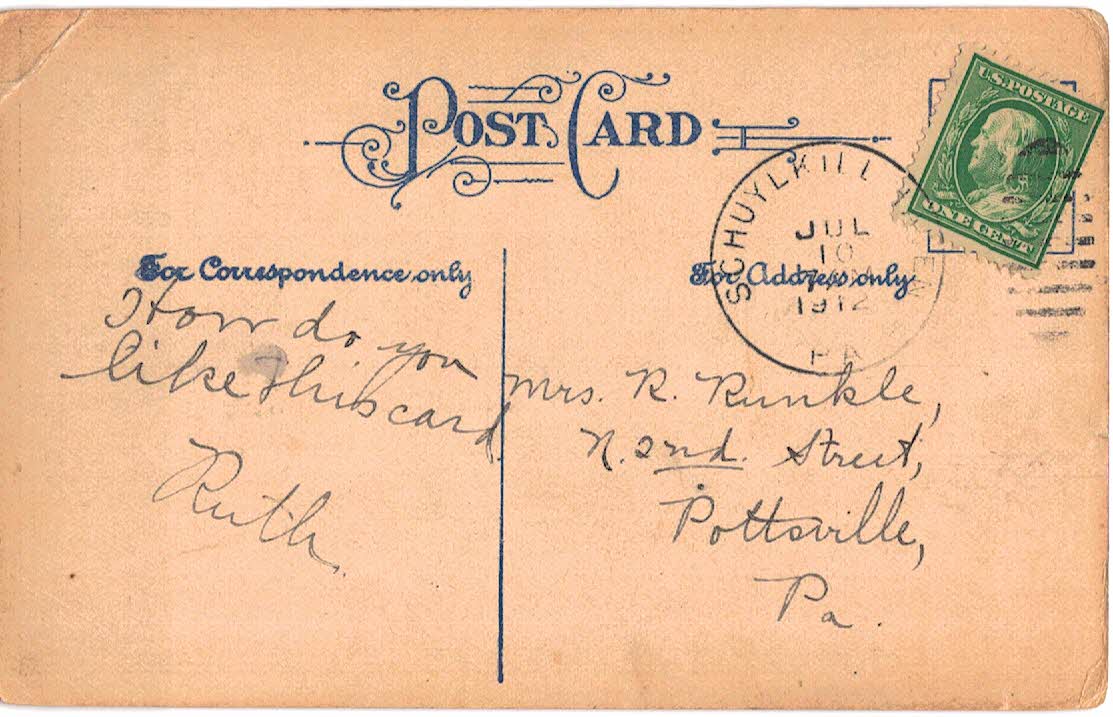 POST CARD
U.S. POSTAGE
ONE CENT
SCHUYLKILL
JUL
10
1912
PA
For Correspondence only
For Address only
How do you
like this card
Ruth.
Mrs. R. Runkle,
N. 2nd. Street,
Pottsville,
Pa.